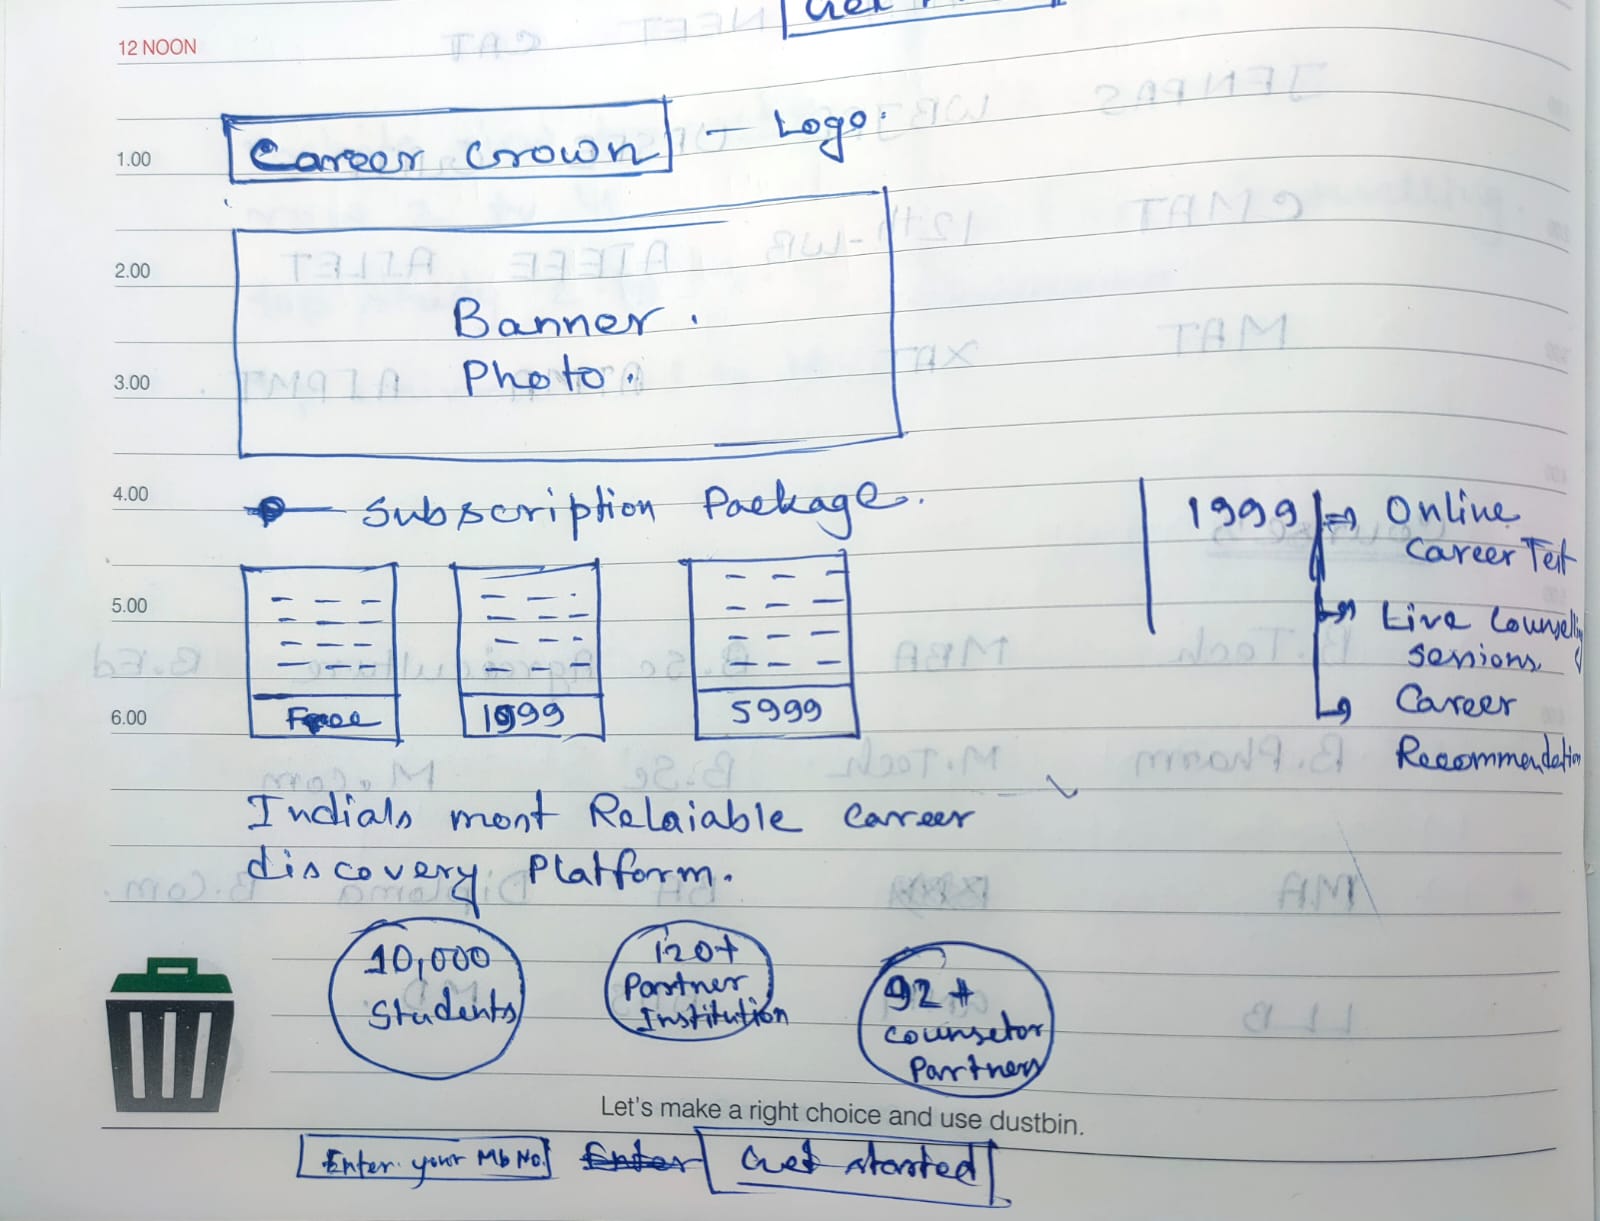 12 NOON
Career Crown - Logo.
1.00
2.00
Banner.
Photo.
3.00
4.00
Subscription Package.
5.00
6.00
Free 1999 5999
1999 ⇒ Online
Career Test
Live Counselling
Sessions
Career
Recommendation
India's most Relaiable career
discovery Platform.
10,000
Students
120+
Partner
Institution
92+
Counselor
Partners
Let's make a right choice and use dustbin.
Enter your Mb No. Enter Get started